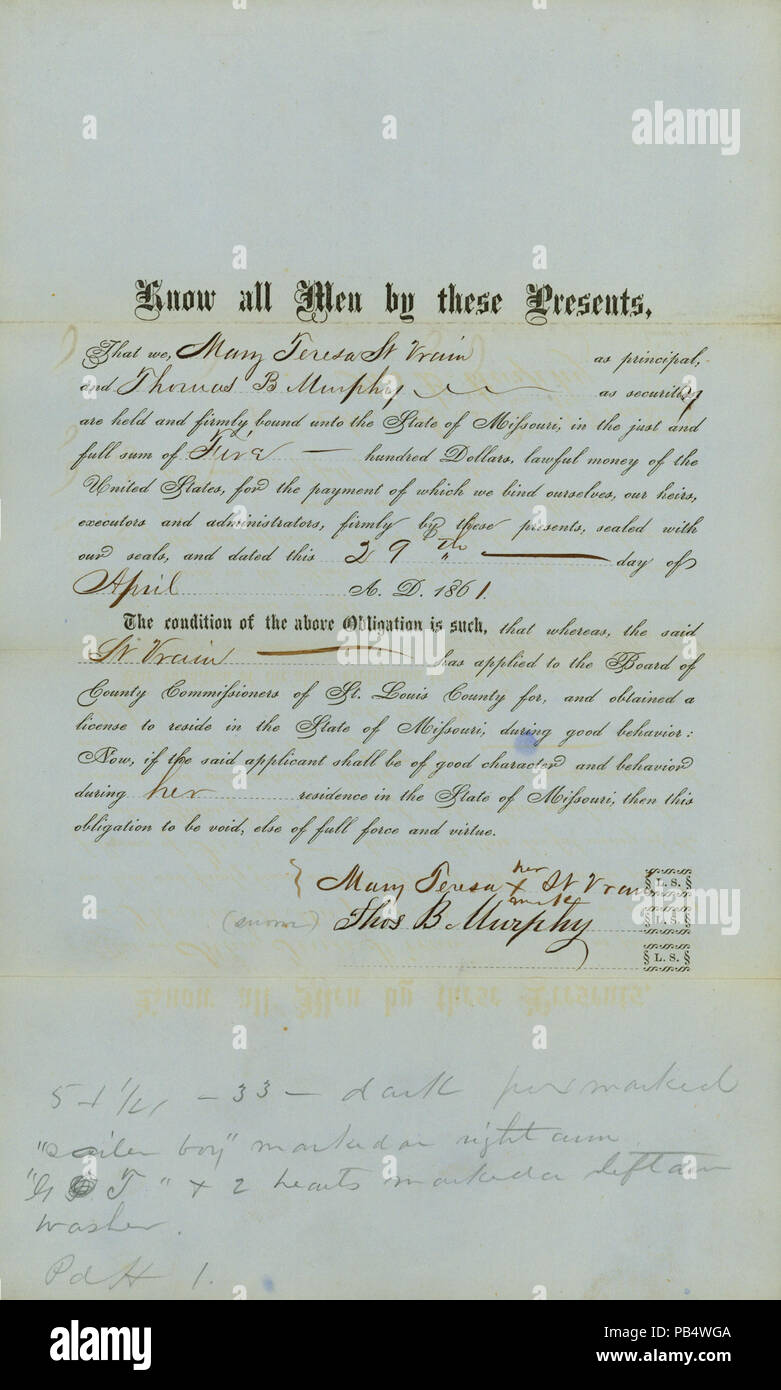 alamy
Know all Men by these Presents,
That we, Mary Teresa St Vrain as principal,
and Thomas B Murphy as securities
are held and firmly bound unto the State of Missouri, in the just and
full sum of Five — hundred Dollars, lawful money of the
United States, for the payment of which we bind ourselves, our heirs,
executors and administrators, firmly by these presents, sealed with
our seals, and dated this 29th — day of
April A. D. 1861.
The condition of the above Obligation is such, that whereas, the said
St Vrain — has applied to the Board of
County Commissioners of St. Louis County for, and obtained a
license to reside in the State of Missouri, during good behavior:
Now, if the said applicant shall be of good character and behavior
during her residence in the State of Missouri, then this
obligation to be void, else of full force and virtue.
her
Mary Teresa x St Vrain L. S.
mark
Thos B Murphy L. S.
L. S.
33 — dark marked
boy" marked on right arm
T" + 2 hearts marked on left arm
washer.
Pd H 1.
alamy
Image ID: PB4WGA
www.alamy.com